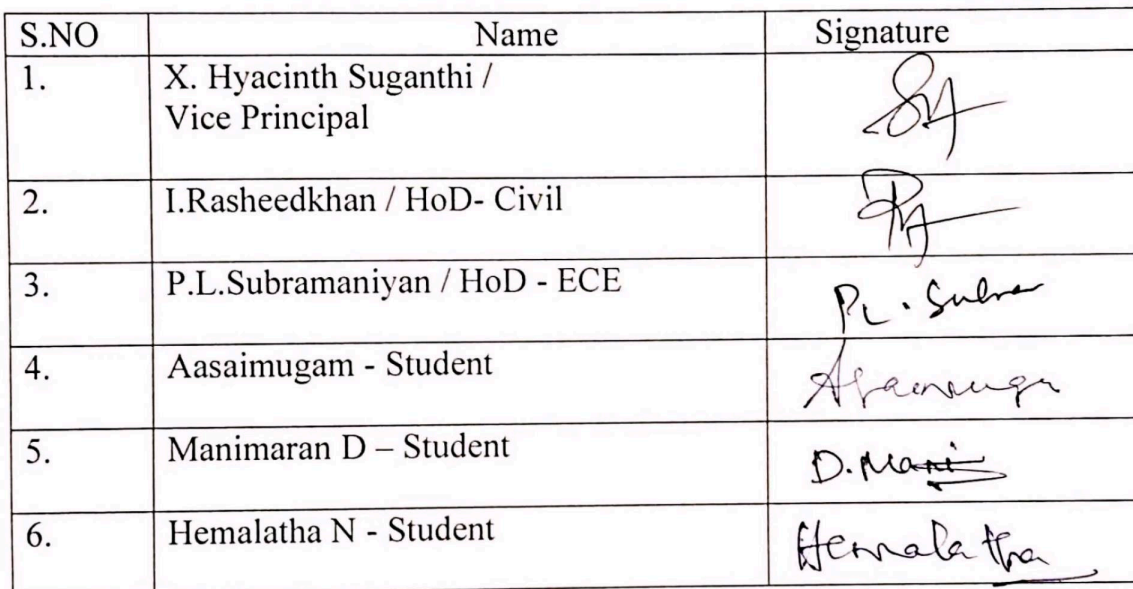 S.NO Name Signature
1. X. Hyacinth Suganthi /
Vice Principal
2. I.Rasheedkhan / HoD- Civil
3. P.L.Subramaniyan / HoD - ECE PL. Subra
4. Aasaimugam - Student
5. Manimaran D – Student D.Mani
6. Hemalatha N - Student Hemalatha